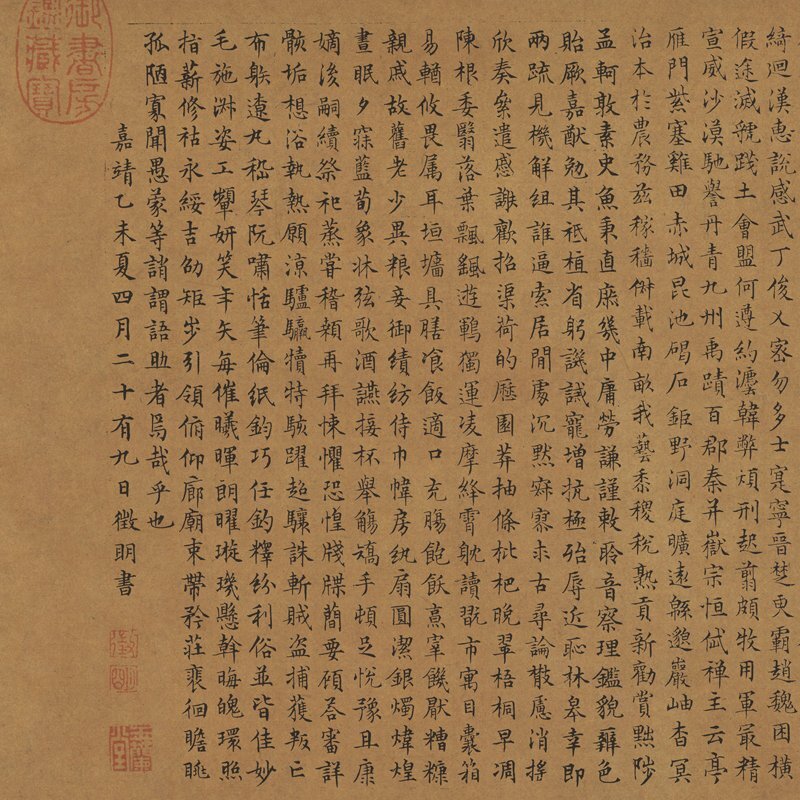 綺迴漢惠說感武丁俊乂密勿多士寔寧晉楚更霸趙魏困橫
假途滅虢踐土會盟何遵約灋韓弊煩刑起翦頗牧用軍最精
宣威沙漠馳譽丹青九州禹蹟百郡秦并嶽宗恒岱禪主云亭
雁門紫塞雞田赤城昆池碣石鉅野洞庭曠遠緜邈巖岫杳冥
治本於農務茲稼穡俶載南畝我藝黍稷稅熟貢新勸賞黜陟
孟軻敦素史魚秉直庶幾中庸勞謙謹敕聆音察理鑑貌辨色
貽厥嘉猷勉其祗植省躬譏誡寵增抗極殆辱近恥林皋幸即
兩疏見機解組誰逼索居閒處沉默寂寥求古尋論散慮消搖
欣奏累遣慼謝歡招渠荷的歷園莽抽條枇杷晚翠梧桐早凋
陳根委翳落葉飄颻遊鵾獨運凌摩絳霄耽讀翫市寓目囊箱
易輶攸畏属耳垣墻具膳飡飯適口充膓飽飫烹宰饑厭糟糠
親戚故舊老少異粮妾御績紡侍巾帷房紈扇圓潔銀燭煒煌
晝眠夕寐藍筍象牀弦歌酒讌接杯舉觴矯手頓足悅豫且康
嫡後嗣續祭祀蒸嘗稽顙再拜悚懼恐惶牋牒簡要顧荅審詳
骸垢想浴執熱願涼驢驘犢特駭躍超驤誅斬賊盜捕獲叛亡
布射遼丸嵇琴阮嘯恬筆倫紙鈞巧任釣釋紛利俗並皆佳妙
毛施淑姿工顰妍笑年矢每催曦暉朗曜璇璣懸斡晦魄環照
指薪修祜永綏吉劭矩步引領俯仰廊廟束帶矜莊裴徊瞻眺
孤陋寡聞愚蒙等誚謂語助者焉哉乎也
嘉靖乙未夏四月二十有九日徵明書
御書房
鑑藏寶
徵明